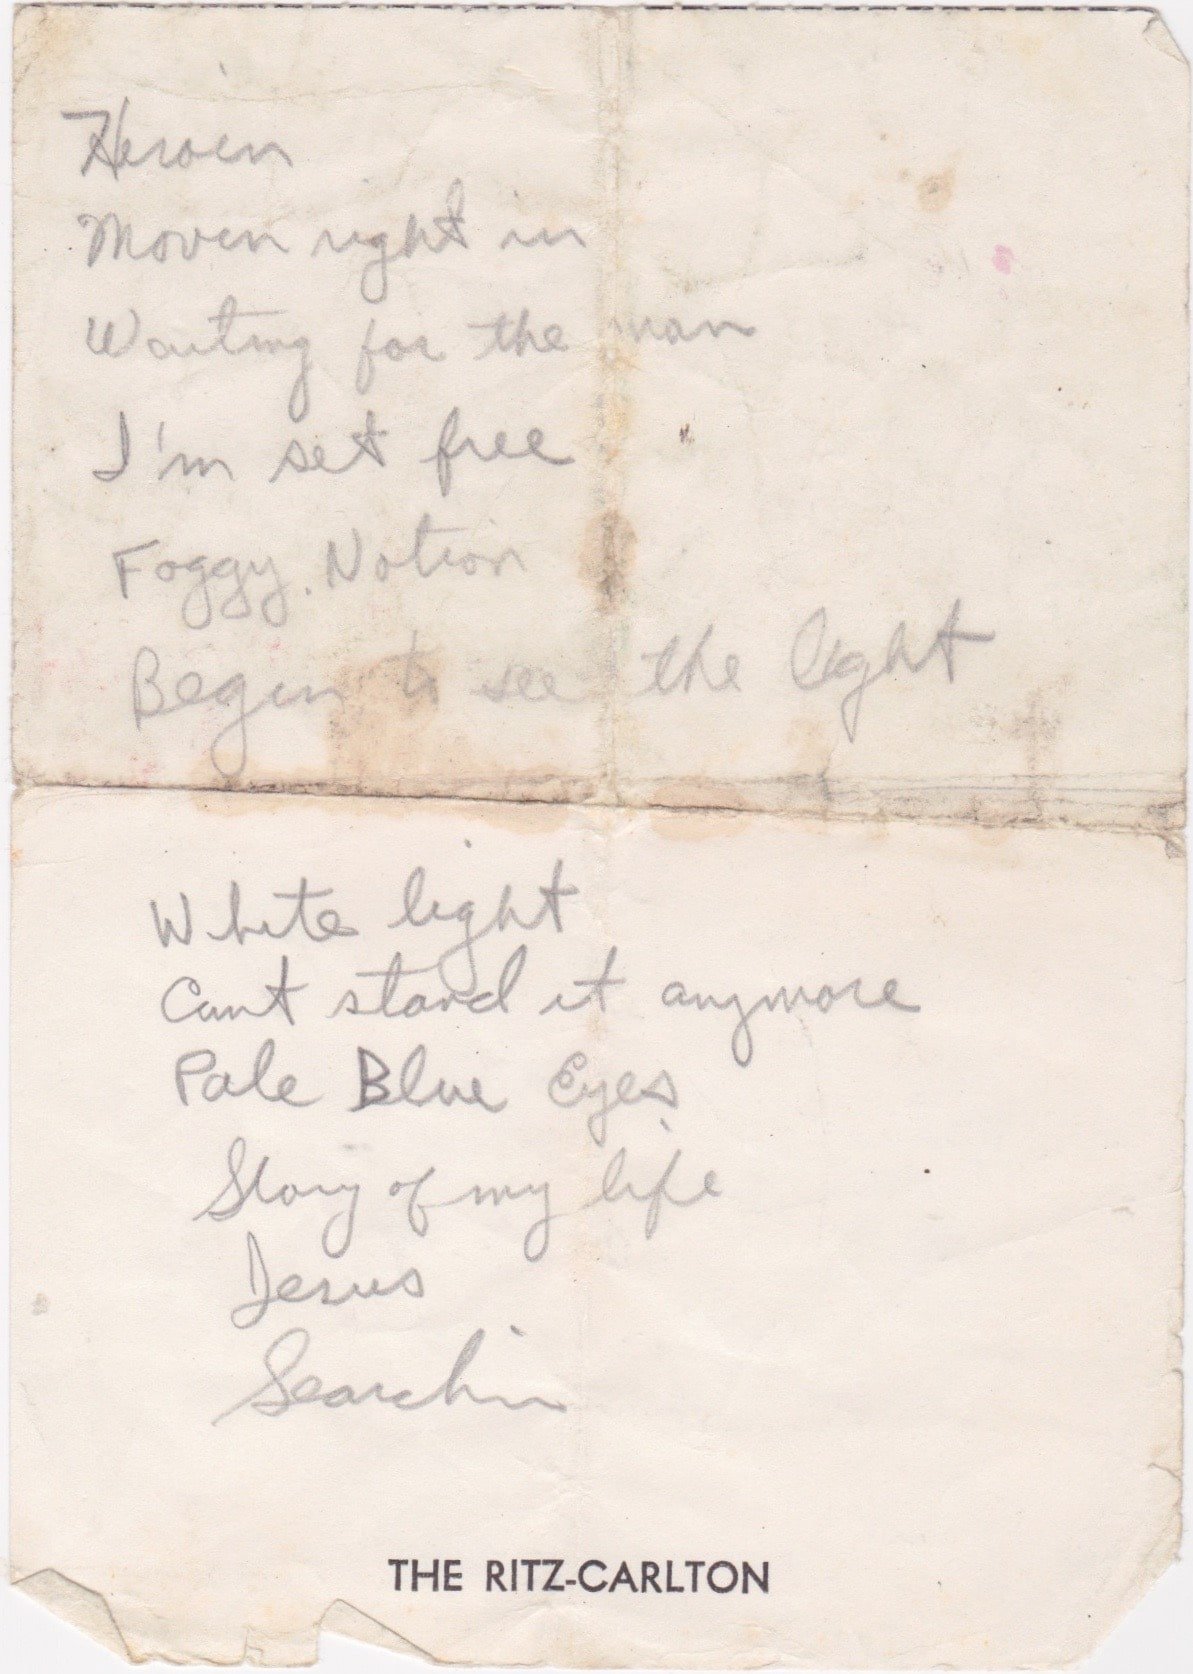 Heroin
Moven right in
Waiting for the man
I'm set free
Foggy Notion
Begin to see the light
White light
Cant stand it anymore
Pale Blue Eyes
Story of my life
Jesus
Searchin
THE RITZ-CARLTON